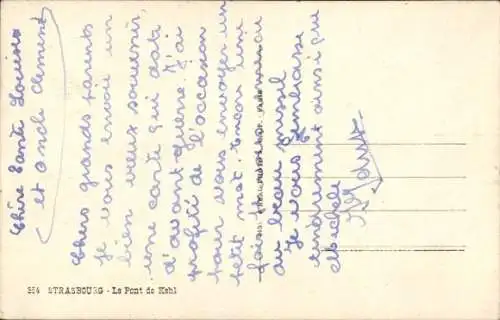 Chère Tante Louise
et oncle Clément
Chers grands parents
je vous envoie un
bien vieux souvenir,
une carte qui date
d'avant guerre. J'ai
profité de l'occasion
pour vous envoyer un
petit mot. Encore une
fois
au beau
Je vous embrasse
tendrement ainsi que
Michele
354 STRASBOURG - Le Pont de Kehl